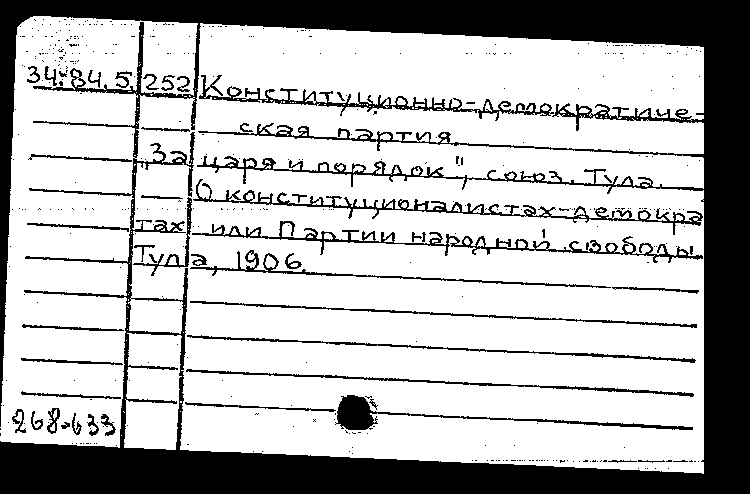 34.84.5. 252 Конституционно-демократиче-
ская партия.
„За царя и порядок", союз. Тула.
О конституционалистах-демокра
тах или Партии народной свободы.
Тула, 1906.
268-633